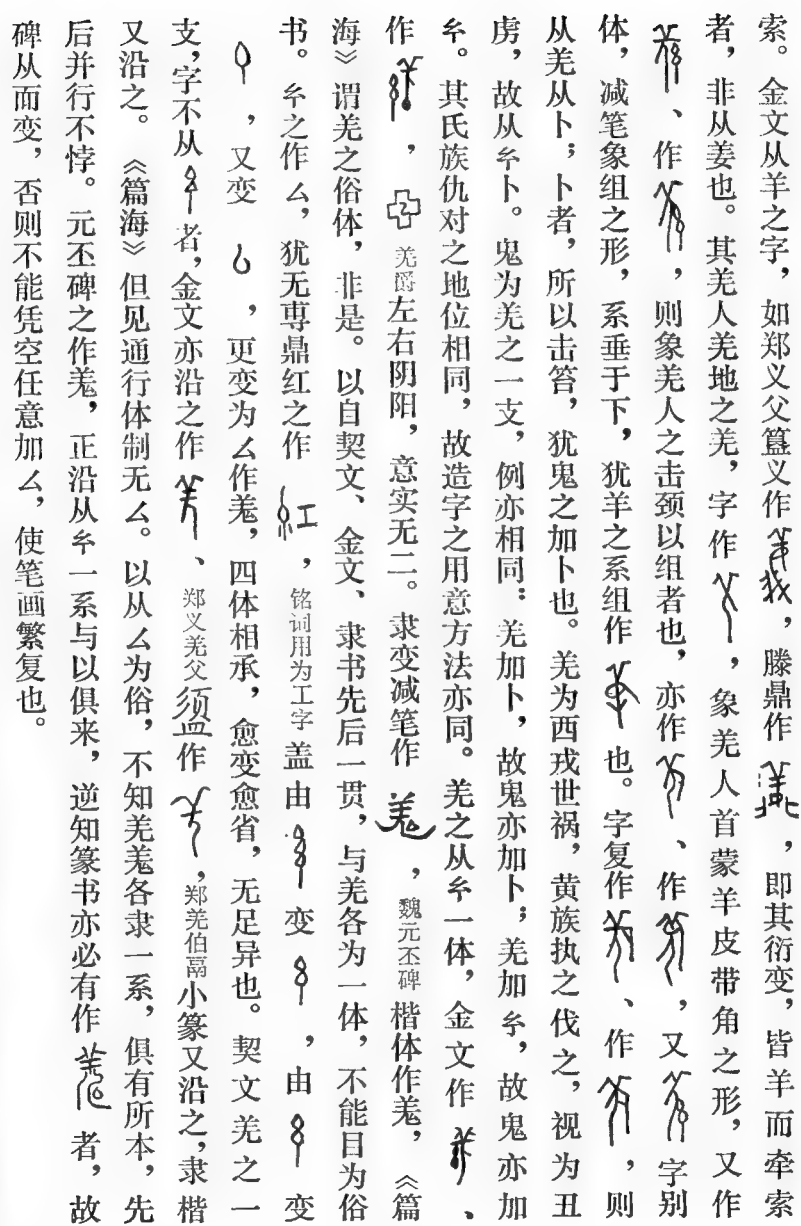 索。金文从羊之字，如郑义父簋义作，滕鼎作，即其衍变，皆羊而牵索
者，非从姜也。其羌人羌地之羌，字作，象羌人首蒙羊皮带角之形，又作
、作，则象羌人之击颈以组者也，亦作、作，又字别
体，减笔象组之形，系垂于下，犹羊之系组作也。字复作、作，则
从羌从卜；卜者，所以击笞，犹鬼之加卜也。羌为西戎世祸，黄族执之伐之，视为丑
虏，故从糸卜。鬼为羌之一支，例亦相同：羌加卜，故鬼亦加卜；羌加糸，故鬼亦加
糸。其氏族仇对之地位相同，故造字之用意方法亦同。羌之从糸一体，金文作、
作，羌爵左右阴阳，意实无二。隶变减笔作，魏元丕碑楷体作羗，《篇
海》谓羌之俗体，非是。以自契文、金文、隶书先后一贯，与羌各为一体，不能目为俗
书。糸之作厶，犹无専鼎红之作，铭词用为工字盖由变，由变
，又变，更变为厶作羗，四体相承，愈变愈省，无足异也。契文羌之一
支，字不从者，金文亦沿之作、郑义羌父须盨作，郑羌伯鬲小篆又沿之，隶楷
又沿之。《篇海》但见通行体制无厶。以从厶为俗，不知羌羗各隶一系，俱有所本，先
后并行不悖。元丕碑之作羗，正沿从糸一系与以俱来，逆知篆书亦必有作者，故
碑从而变，否则不能凭空任意加厶，使笔画繁复也。